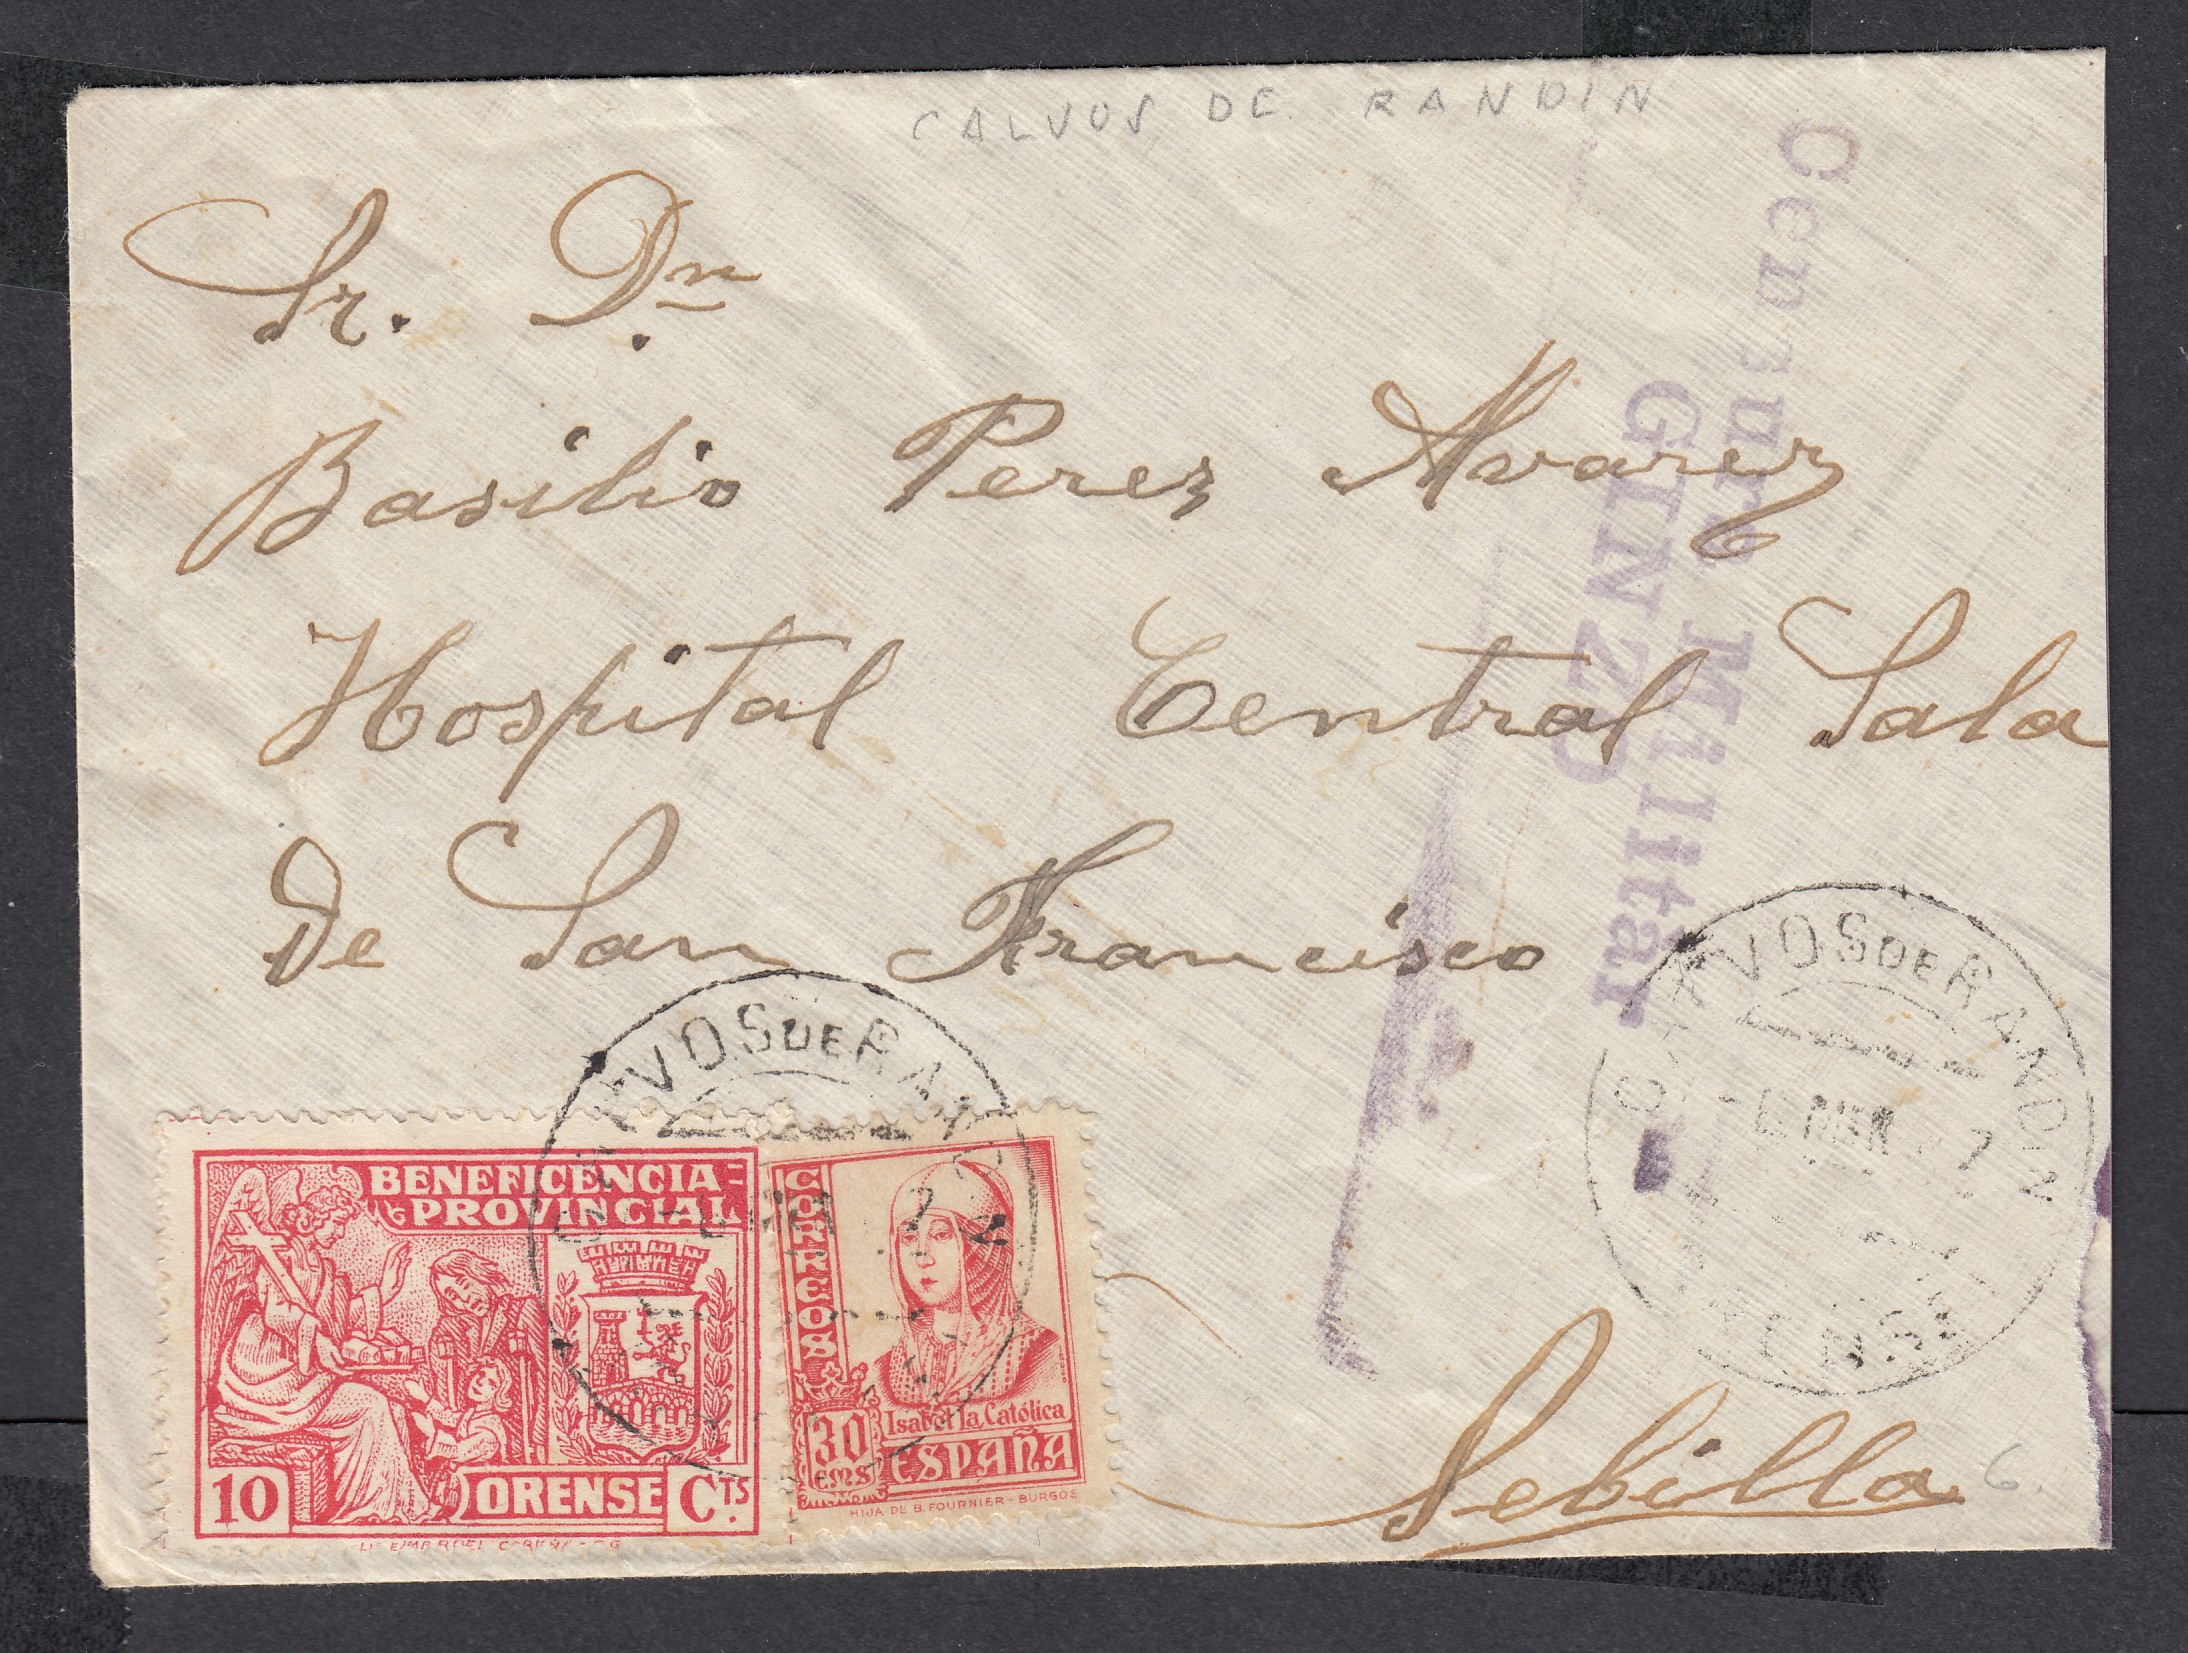 CALVOS DE RANDIN
Sr. Dn
Basilio Perez Alvarez
Hospital Central Sala
De San Francisco
Sebilla
Censura Militar
GINZO
CALVOS DE RANDIN
ORENSE
CALVOS DE RA
BENEFICENCIA
PROVINCIAL
10 ORENSE CTS.
CORREOS
30
CTMS
Isabel la Católica
ESPAÑA
HIJA DE B. FOURNIER - BURGOS
6.